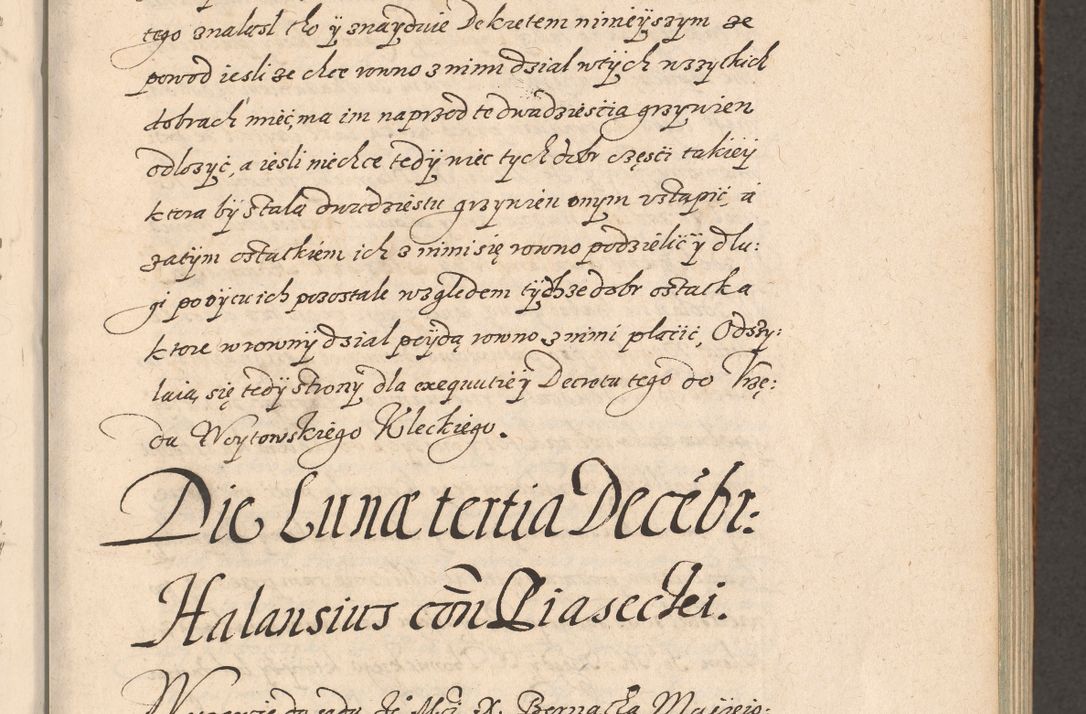 tego znalasl tho ÿ znayduie Dekretem ninieÿszym ze
powod iesli ze chce rowno z nimi dzial wtÿch wszytkich
dobrach mieć, ma im naprzod te dwadziescia grzywien
odlozÿć, a iesli niechce tedÿ niec tych dobr części takieÿ
ktora bÿ stala dwudziestu grzywien onym ustąpić, a
zatÿm ostatkiem ich z nimi się rowno podzielić ÿ dlu:
gi po oÿcu ich pozostale względem tÿchze dobr ostatka
ktore w rownÿ dzial poÿdą rowno z nimi placić, Odszÿ:
laią się tedÿ stronÿ dla exequutieÿ Decretu tego do Vrzę:
du Woytowskiego Kleckiego.
Die Lunæ tertia Decēbr:
Halansius cōn Piaseckei.
Wprawie do sądu Je° Mci X. Bernatta Macieio: